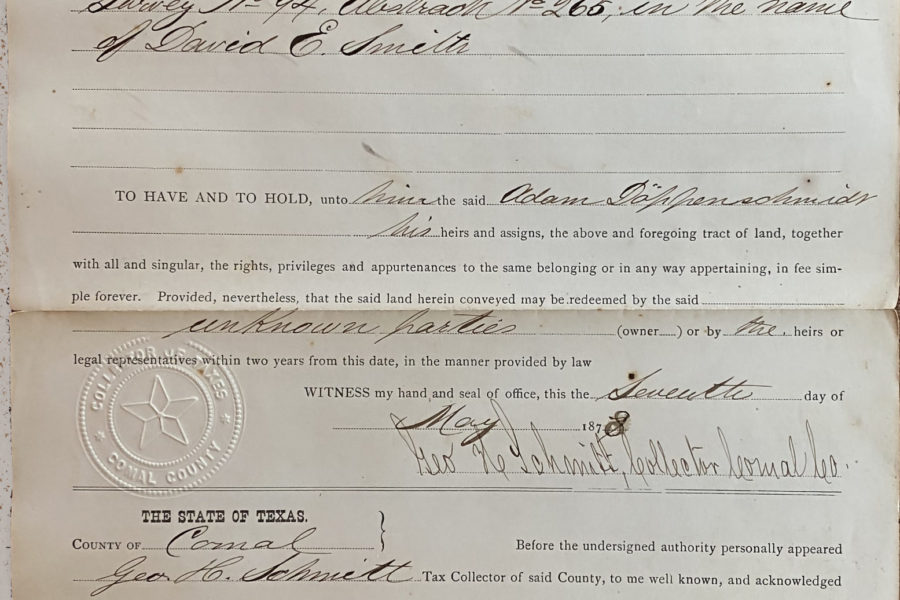 Survey No 94, Abstract No 265, in the name
of David E. Smith
TO HAVE AND TO HOLD, unto him the said Adam Döppenschmidt
his heirs and assigns, the above and foregoing tract of land, together
with all and singular, the rights, privileges and appurtenances to the same belonging or in any way appertaining, in fee sim-
ple forever. Provided, nevertheless, that the said land herein conveyed may be redeemed by the said
unknown parties (owner ) or by the heirs or
legal representatives within two years from this date, in the manner provided by law
WITNESS my hand and seal of office, this the Seventh day of
May 1878
Geo H Schmitt, Collector Comal Co.
COLLECTOR TAXES
COMAL COUNTY
THE STATE OF TEXAS.
COUNTY OF Comal } Before the undersigned authority personally appeared
Geo. H. Schmitt Tax Collector of said County, to me well known, and acknowledged